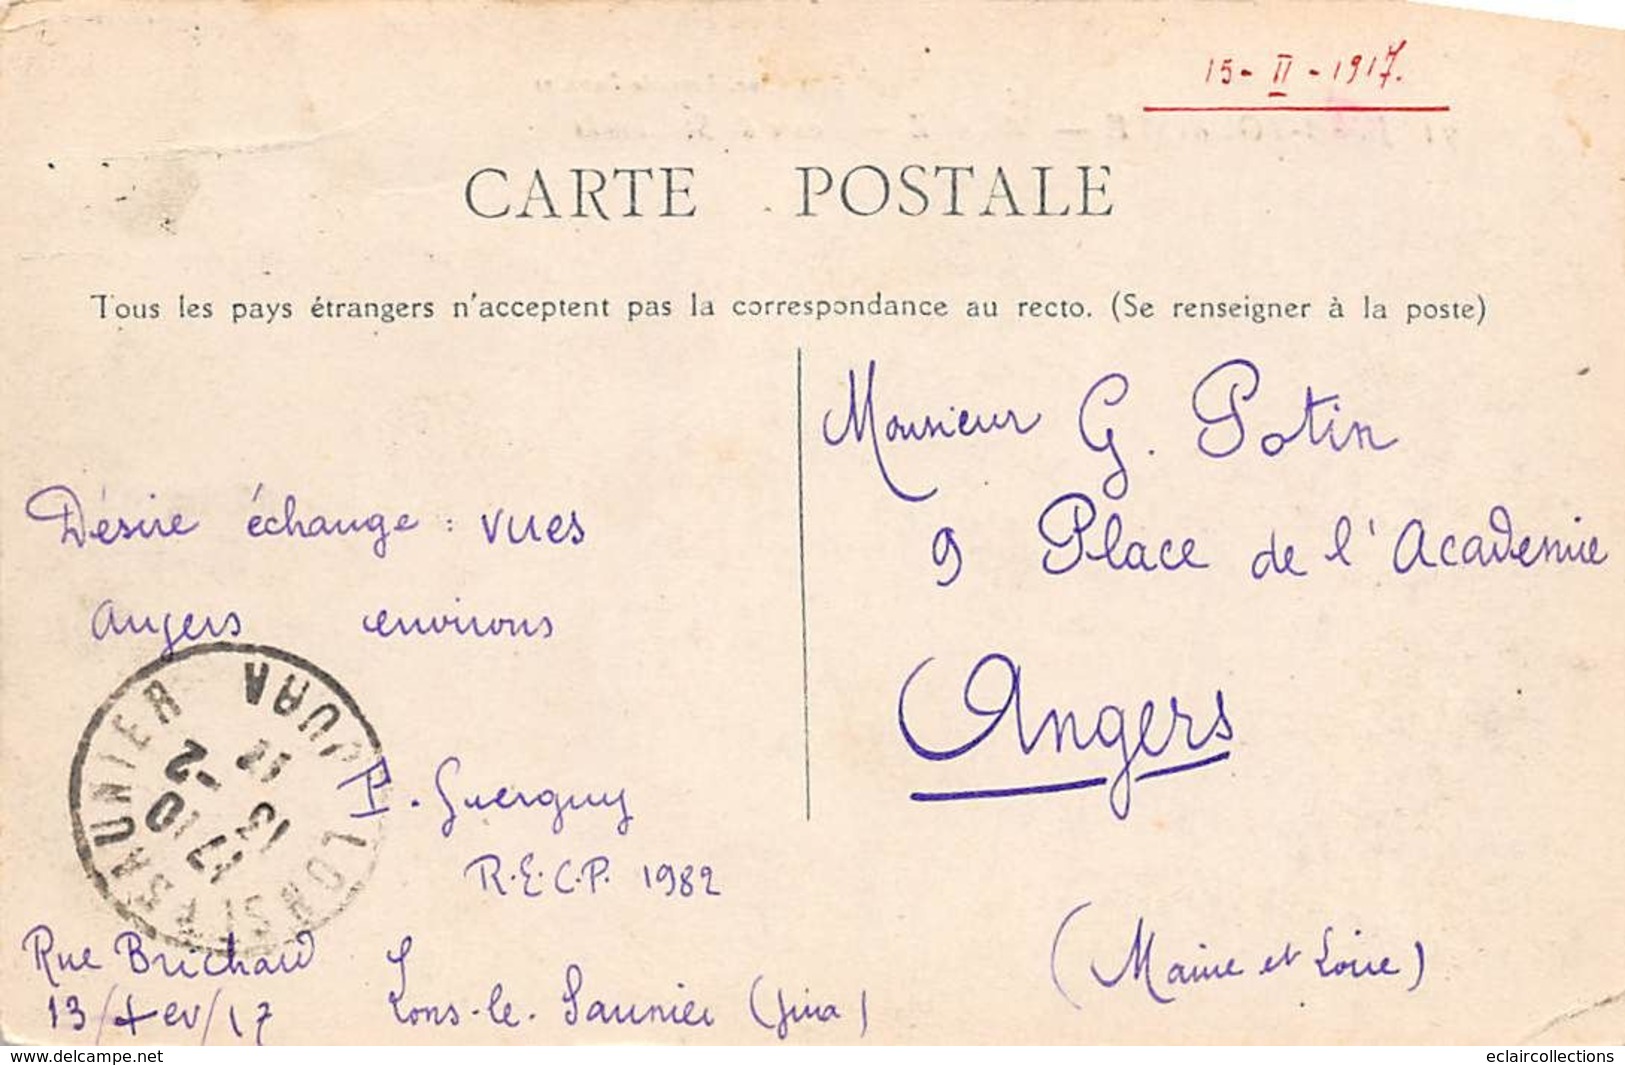 15-II-1917.
CARTE POSTALE
Tous les pays étrangers n'acceptent pas la correspondance au recto. (Se renseigner à la poste)
Monsieur G. Potin
9 Place de l'Academie
Angers
(Maine et Loire)
Désire échange : vues
Angers environs
LONS-LE-SAUNIER JURA
17 10
13 -2
17
P. Guerguy
R.E.C.P. 1982
Rue Brichard
13/fev/17 Lons-le-Saunier (Jura)
delcampe.net
eclaircollections